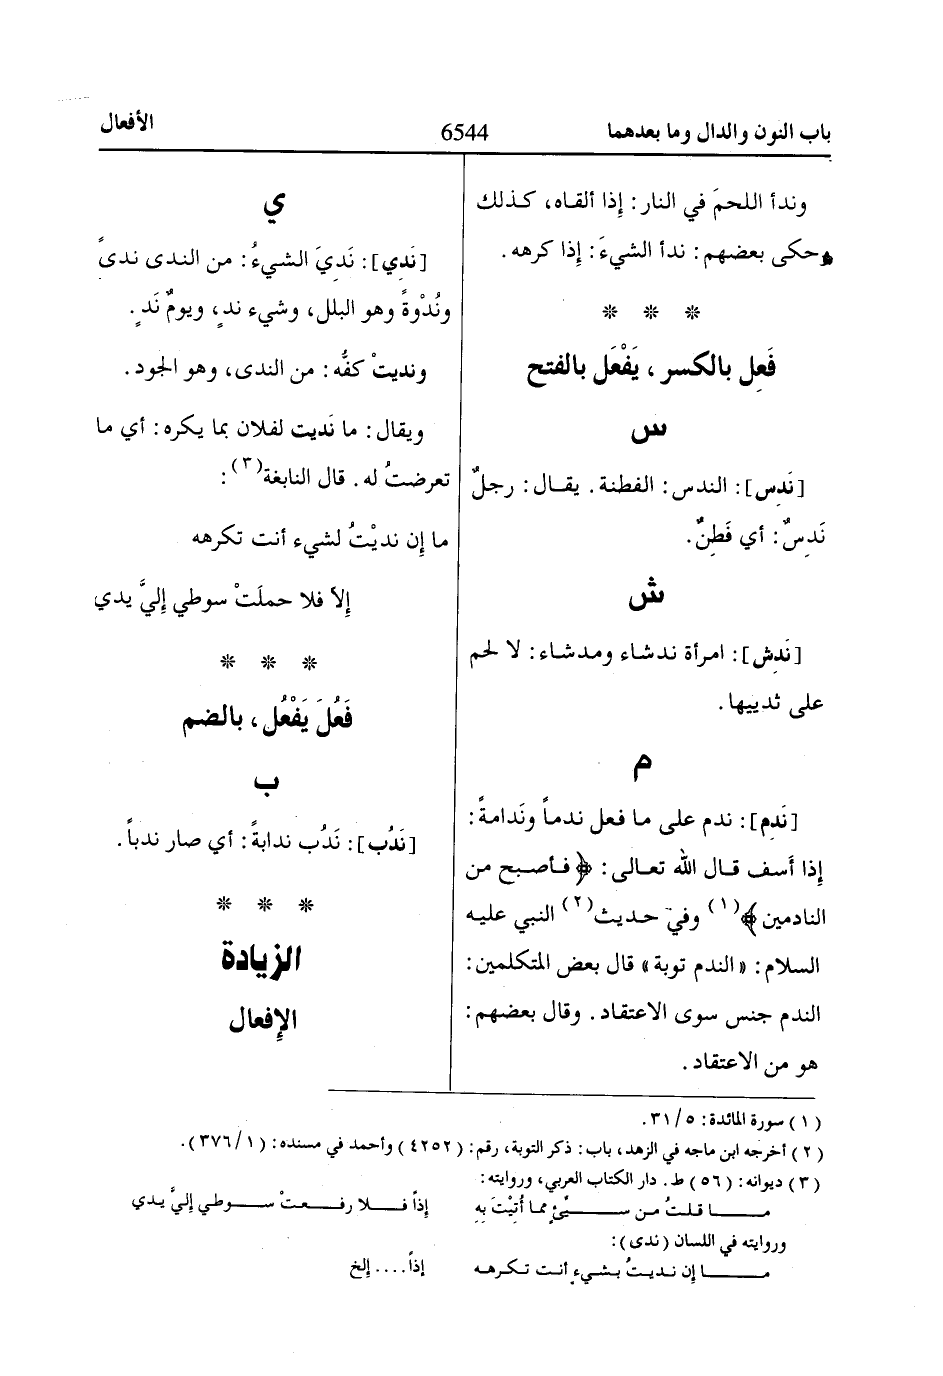 باب النون والدال وما بعدهما
6544
الأفعال
وندأ اللحمَ في النار: إذا ألقاه، كذلك
وحكى بعضهم: ندأ الشيءَ: إذا كرهه.
* * *
فَعِل بالكسر، يَفْعَل بالفتح
س
[نَدِس]: الندس: الفطنة. يقال: رجلٌ
نَدِسٌ: أي فَطِنٌ.
ش
[نَدِش]: امرأة ندشاء ومدشاء: لا لحم
على ثدييها.
م
[نَدِم]: ندم على ما فعل ندماً ونَدامةً:
إذا أَسف قال الله تعالى: ﴿فأصبح من
النادمين﴾(١) وفي حديث(٢) النبي عليه
السلام: «الندم توبة» قال بعض المتكلمين:
الندم جنس سوى الاعتقاد. وقال بعضهم:
هو من الاعتقاد.
ي
[نَدِي]: نَدِيَ الشيءُ: من الندى ندىً
ونُدْوةً وهو البلل، وشيء ندٍ، ويومٌ نَدٍ.
ونديتْ كفُّه: من الندى، وهو الجود.
ويقال: ما نَديت لفلان بما يكره: أي ما
تعرضتُ له. قال النابغة(٣):
ما إن نديْتُ لشيء أنت تكرهه
إلاَّ فلا حملَتْ سوطي إليَّ يدي
* * *
فَعُلَ يَفْعُل، بالضم
ب
[نَدُب]: نَدُب ندابةً: أي صار ندباً.
* * *
الزيادة
الإفعال
(١) سورة المائدة: ٥/ ٣١.
(٢) أخرجه ابن ماجه في الزهد، باب: ذكر التوبة، رقم: (٤٢٥٢) وأحمد في مسنده: (١/ ٣٧٦).
(٣) ديوانه: (٥٦) ط. دار الكتاب العربي، وروايته:
مـــا قلتُ من ســـيِّئٍ مما أُتِيْتَ بِهِ إذاً فـــلا رفـــعتْ ســـوطي إليَّ يدي
وروايته في اللسان (ندى):
مـــا إن نديتُ بشيءٍ أنت تكرهـه إذاً.... إلخ